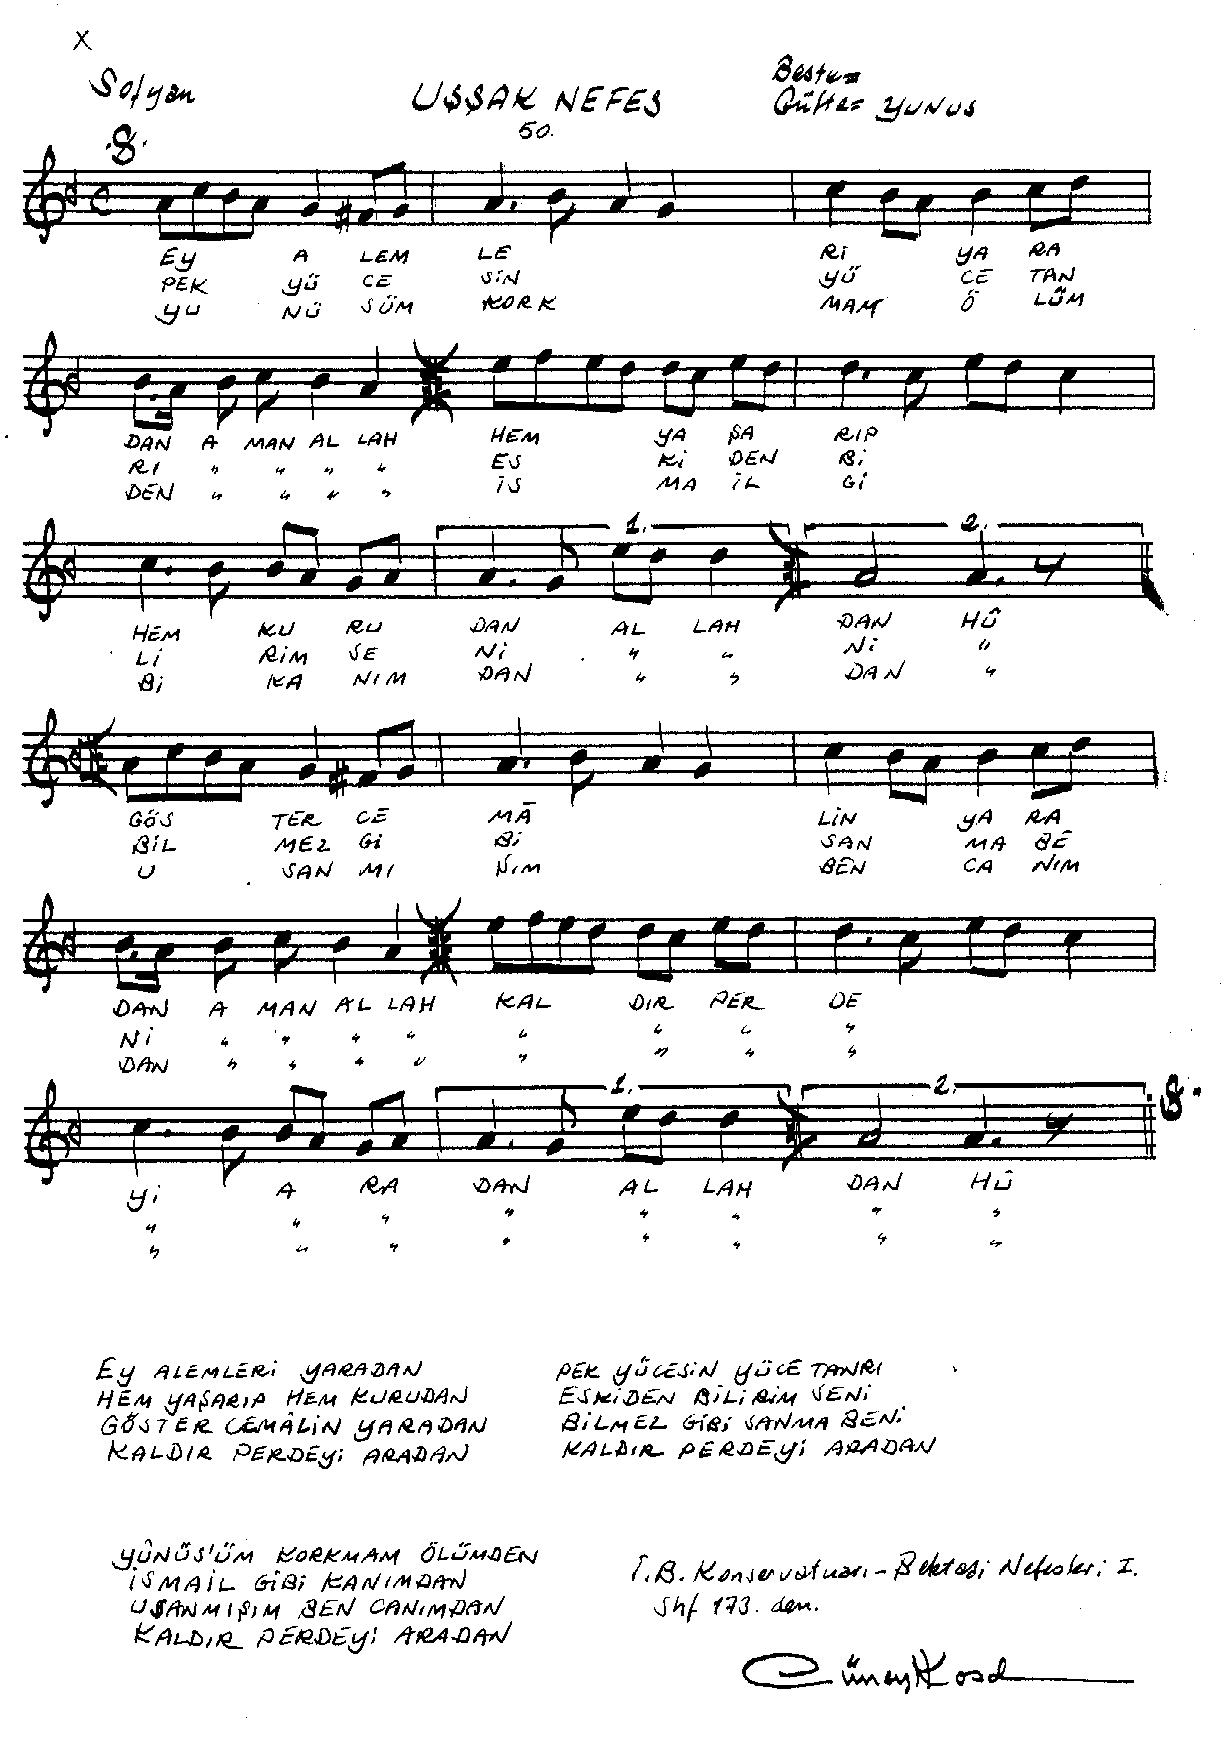 X
Sofyan
UŞŞAK NEFES
Beste=
Güfte= YUNUS
50.
EY A LEM LE Rİ YA RA
PEK YÜ CE SİN YÜ CE TAN
YU NÜ SÜM KORK MAM Ö LÜM
DAN A MAN AL LAH HEM YA ŞA RIP
RI " " " " ES Kİ DEN Bİ
DEN " " " " İS MA İL Gİ
1. 2.
HEM KU RU DAN AL LAH DAN HÛ
Lİ RİM SE Nİ " " Nİ "
Bİ KA NIM DAN " " DAN "
GÖS TER CE MÂ LİN YA RA
BİL MEZ Gİ Bİ SAN MA BE
U SAN MI ŞIM BEN CA NIM
DAN A MAN AL LAH KAL DIR PER DE
Nİ " " " " " " " "
DAN " " " " " " " "
1. 2.
Yİ A RA DAN AL LAH DAN HÛ
" " " " " " " "
" " " " " " " "
EY ALEMLERİ YARADAN
HEM YAŞARIP HEM KURUDAN
GÖSTER CEMÂLİN YARADAN
KALDIR PERDEYİ ARADAN
PEK YÜCESİN YÜCE TANRI
ESKİDEN BİLİRİM SENİ
BİLMEZ GİBİ SANMA BENİ
KALDIR PERDEYİ ARADAN
YÛNÜS'ÜM KORKMAM ÖLÜMDEN
İSMAİL GİBİ KANIMDAN
UŞANMIŞIM BEN CANIMDAN
KALDIR PERDEYİ ARADAN
İ.B. Konservatuarı - Bektaşi Nefesleri I.
Shf 173. den.